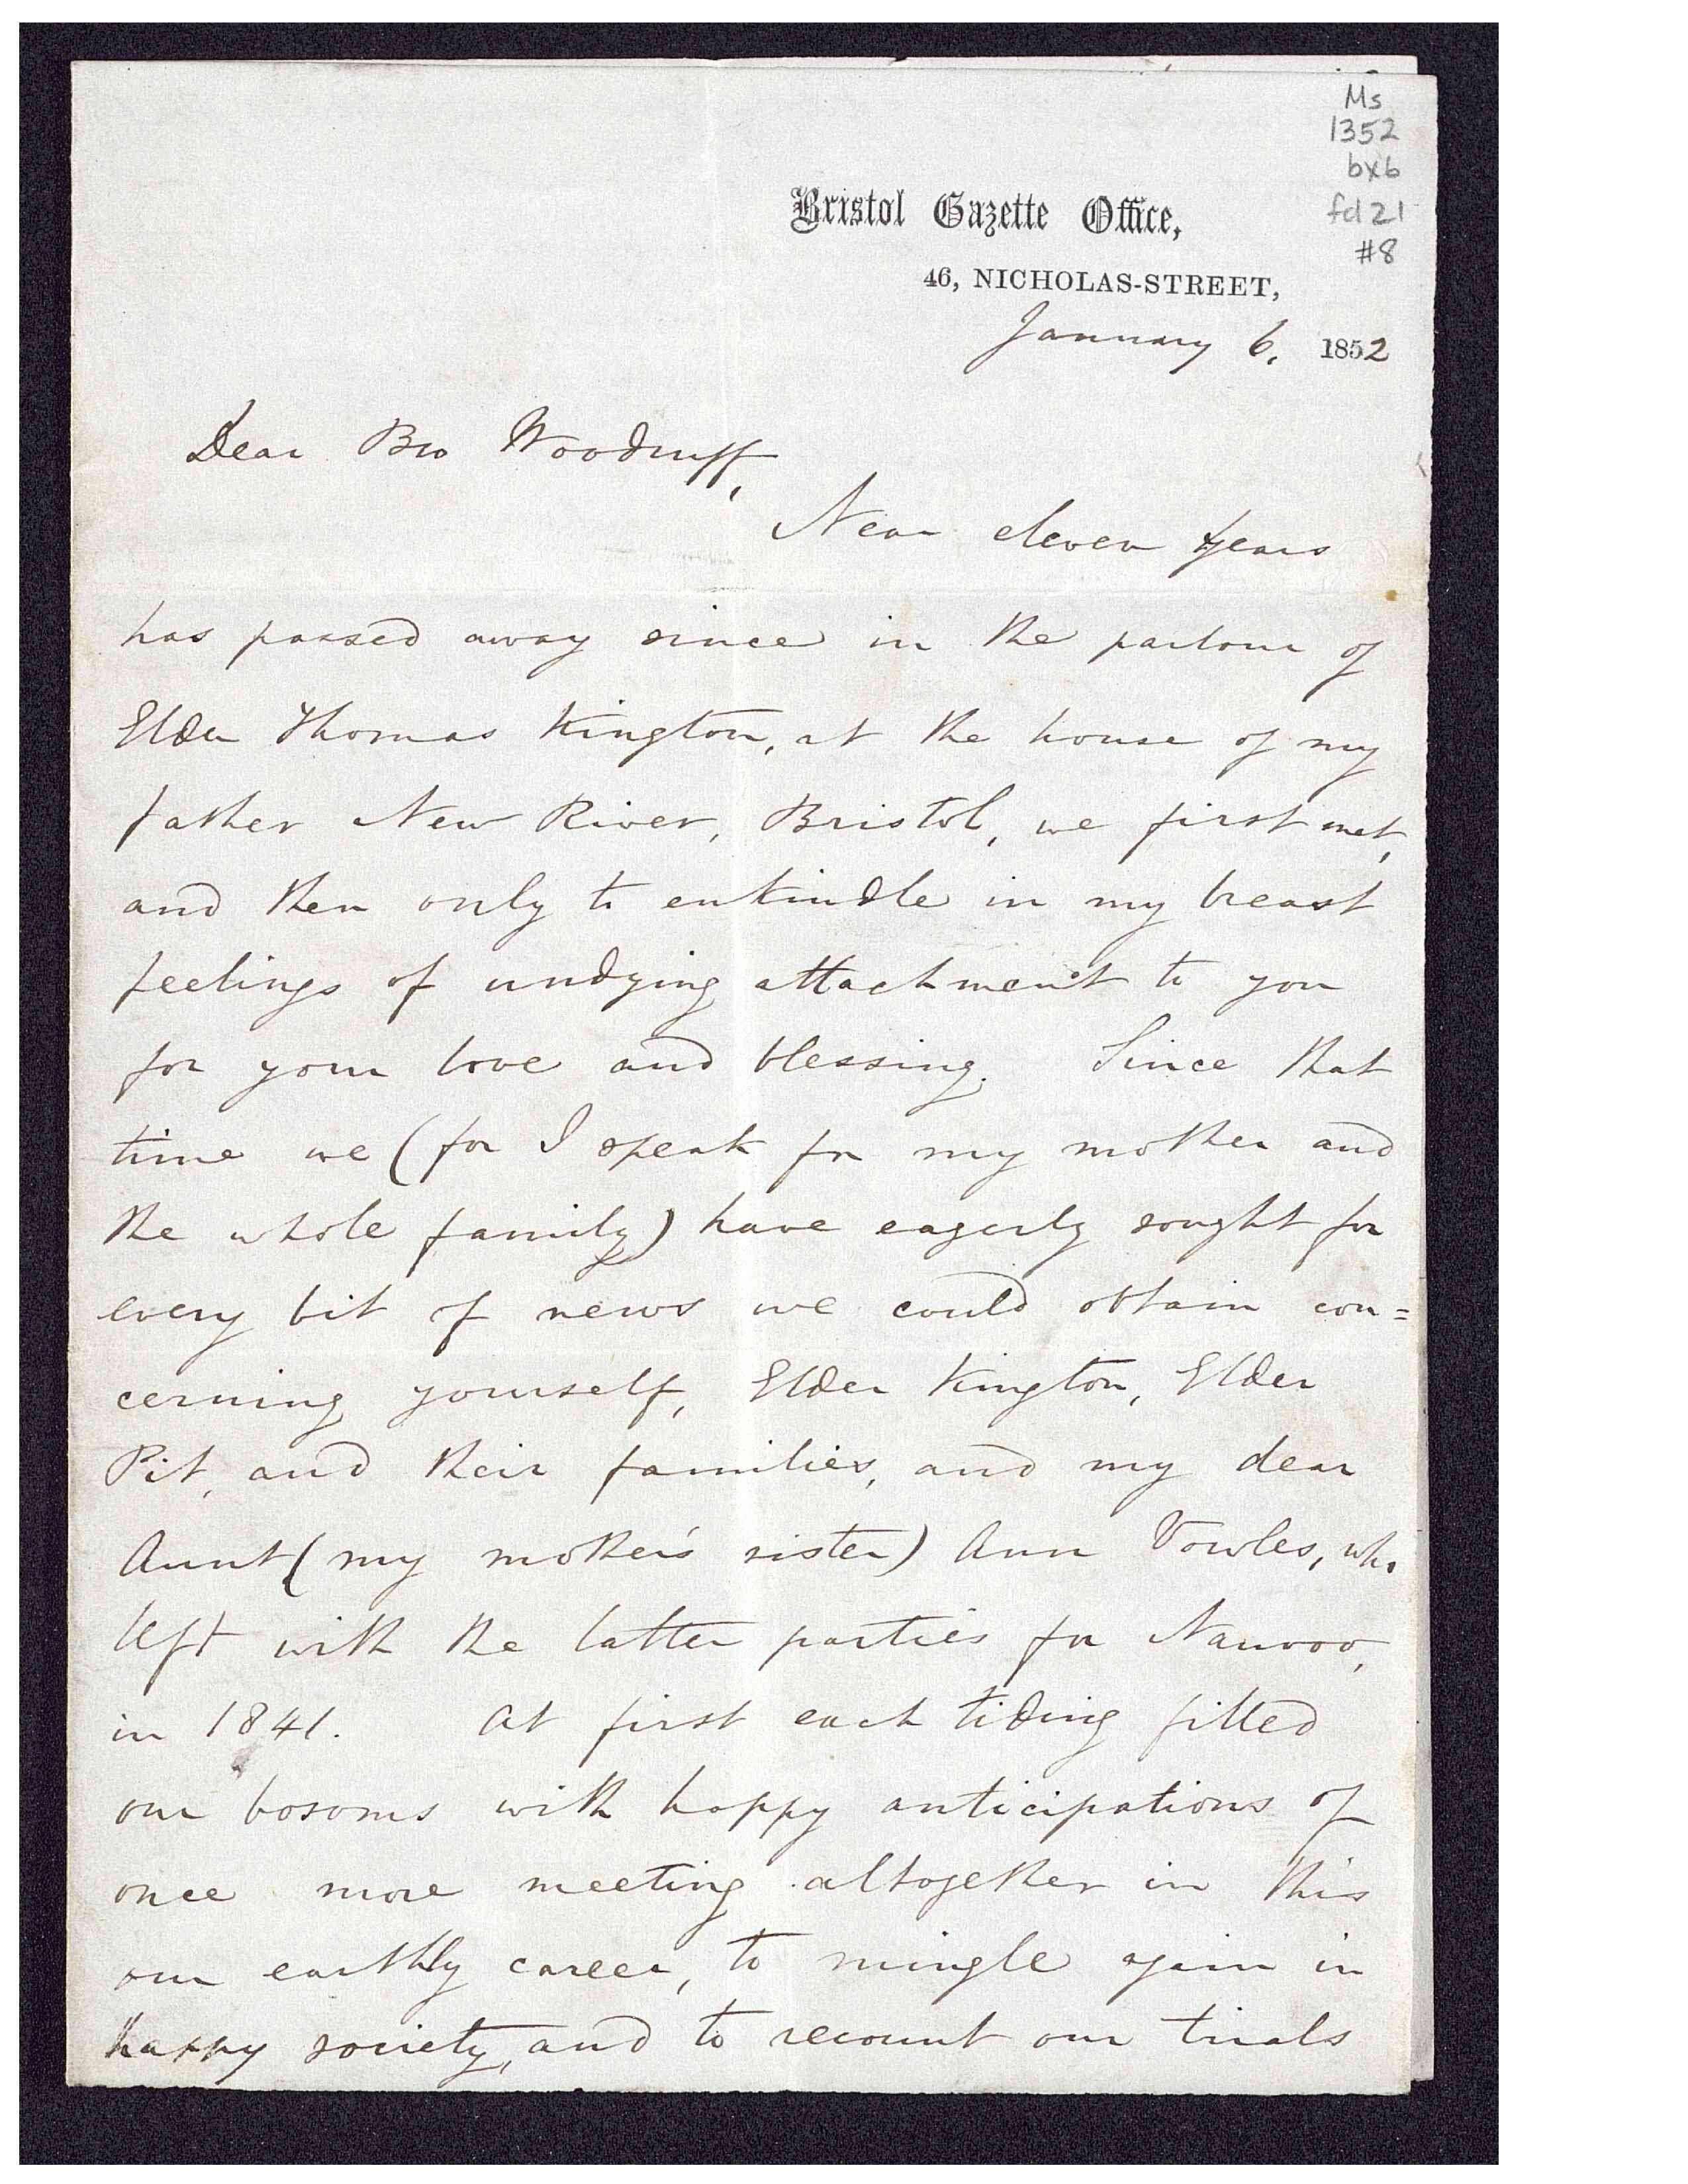 Ms
1352
bx6
fd 21
#8
Bristol Gazette Office,
46, NICHOLAS-STREET,
January 6, 1852
Dear Bro Woodruff,
Near eleven years
has passed away since in the parlour of
Elder Thomas Kington, at the house of my
father New River, Bristol, we first met,
and then only to enkindle in my breast
feelings of undying attachment to you
for your love and blessing. Since that
time we (for I speak for my mother and
the whole family) have eagerly sought for
every bit of news we could obtain con=
cerning yourself, Elder Kington, Elder
Pit, and their families, and my dear
Aunt (my mother's sister) Ann Vowles, who
left with the latter parties for Nauvoo,
in 1841. At first each tiding filled
our bosoms with happy anticipations of
once more meeting altogether in this
our earthly career, to mingle again in
happy society, and to recount our trials